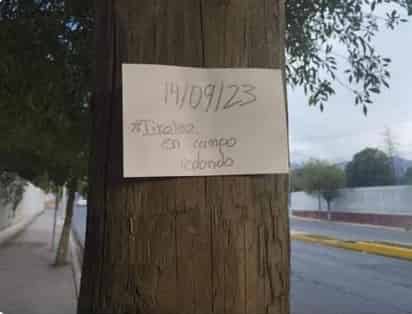 14/09/23
en campo
redondo